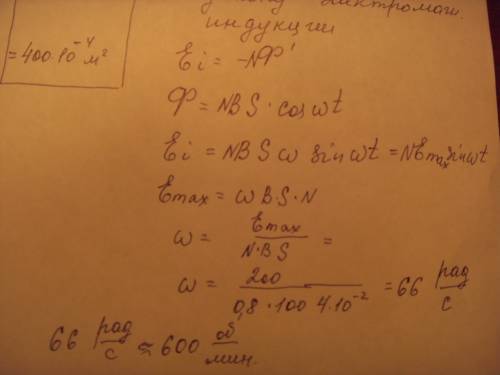 закону электромагн.
индукции
= 400·10⁻⁴ м²
Ei = -NФ'
Ф = NBS·cos ωt
Ei = NBSω sin ωt = NEmax sin ωt
Emax = ωB·S·N
ω = Emax / N·BS =
ω = 200 / 0,8·100 4·10⁻² = 66 рад/с
66 рад/с ≈ 600 об/мин.